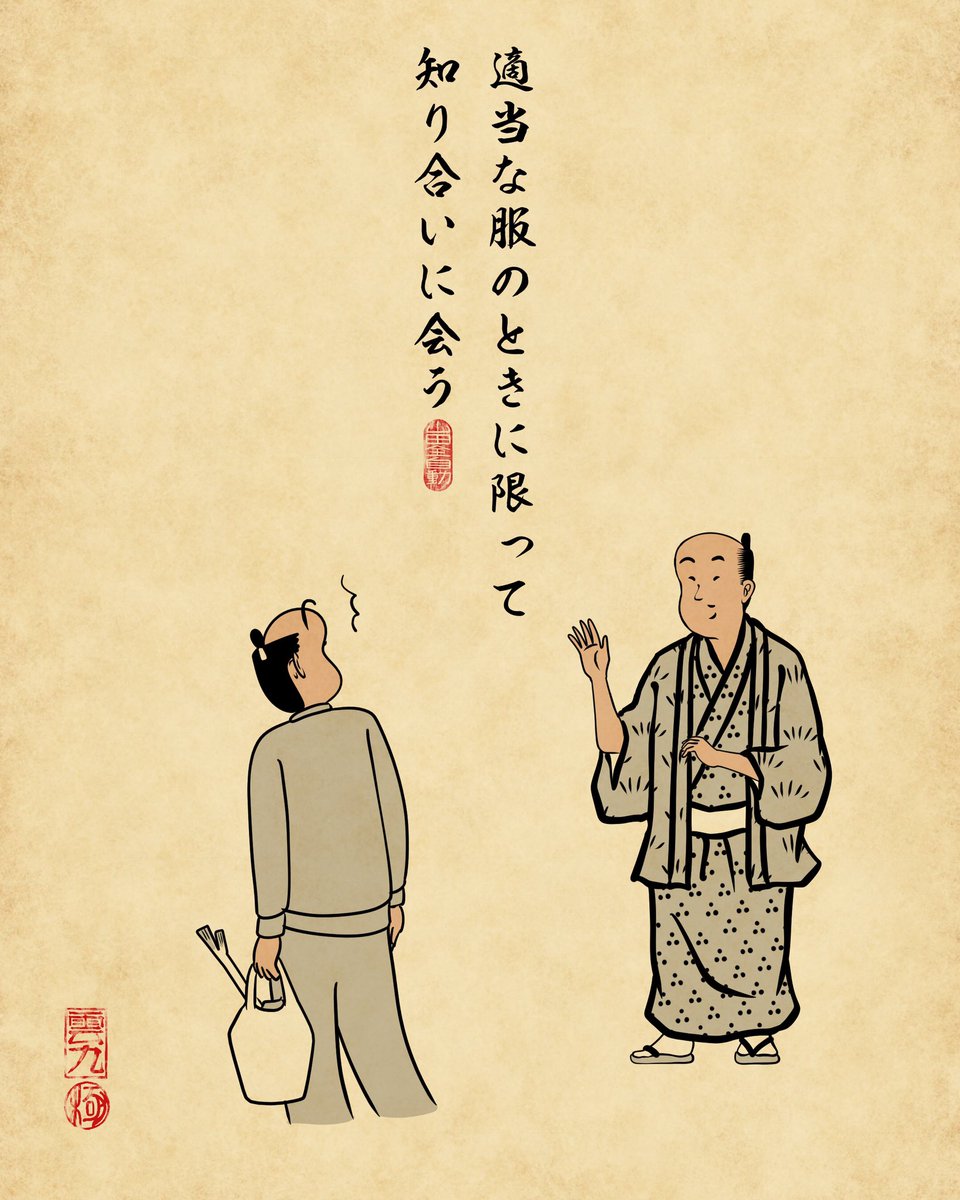 適当な服のときに限って
知り合いに会う